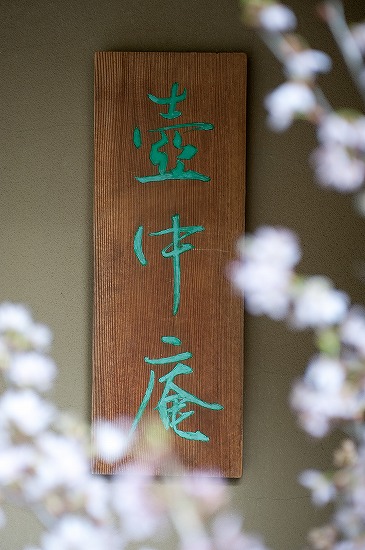 壺中庵